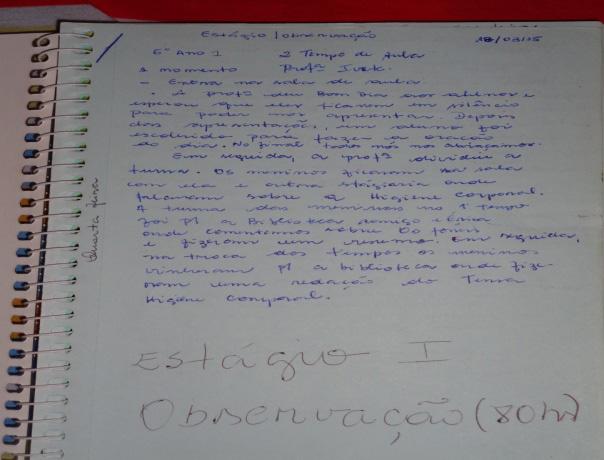 Estágio / Observação 18/03/15
6º Ano 1 2 Tempo de Aula
1 momento Profª Ivete.
- Entra na sala de aula.
. A profª deu Bom Dia aos alunos e
esperou que eles ficarem em silêncio
para poder nos apresentar. Depois
das apresentações, um aluno foi
escolhido para fazer a oração
do dia. No final todos nós nos abraçamos.
Em seguida, a profª dividiu a
turma. Os meninos ficaram na sala
com ela e outra stagiaria onde
falaram sobre a Higiene Corporal.
A turma das meninas no 1º tempo
foi p/ a Biblioteca comigo e
onde comentamos sobre
e fizeram um resumo. Em seguida,
na troca dos tempos os meninos
vinheram p/ a biblioteca onde fize-
ram uma redação do Tema
Higiene Corporal.
Quarta feira
Estágio I
Observação (80hs)